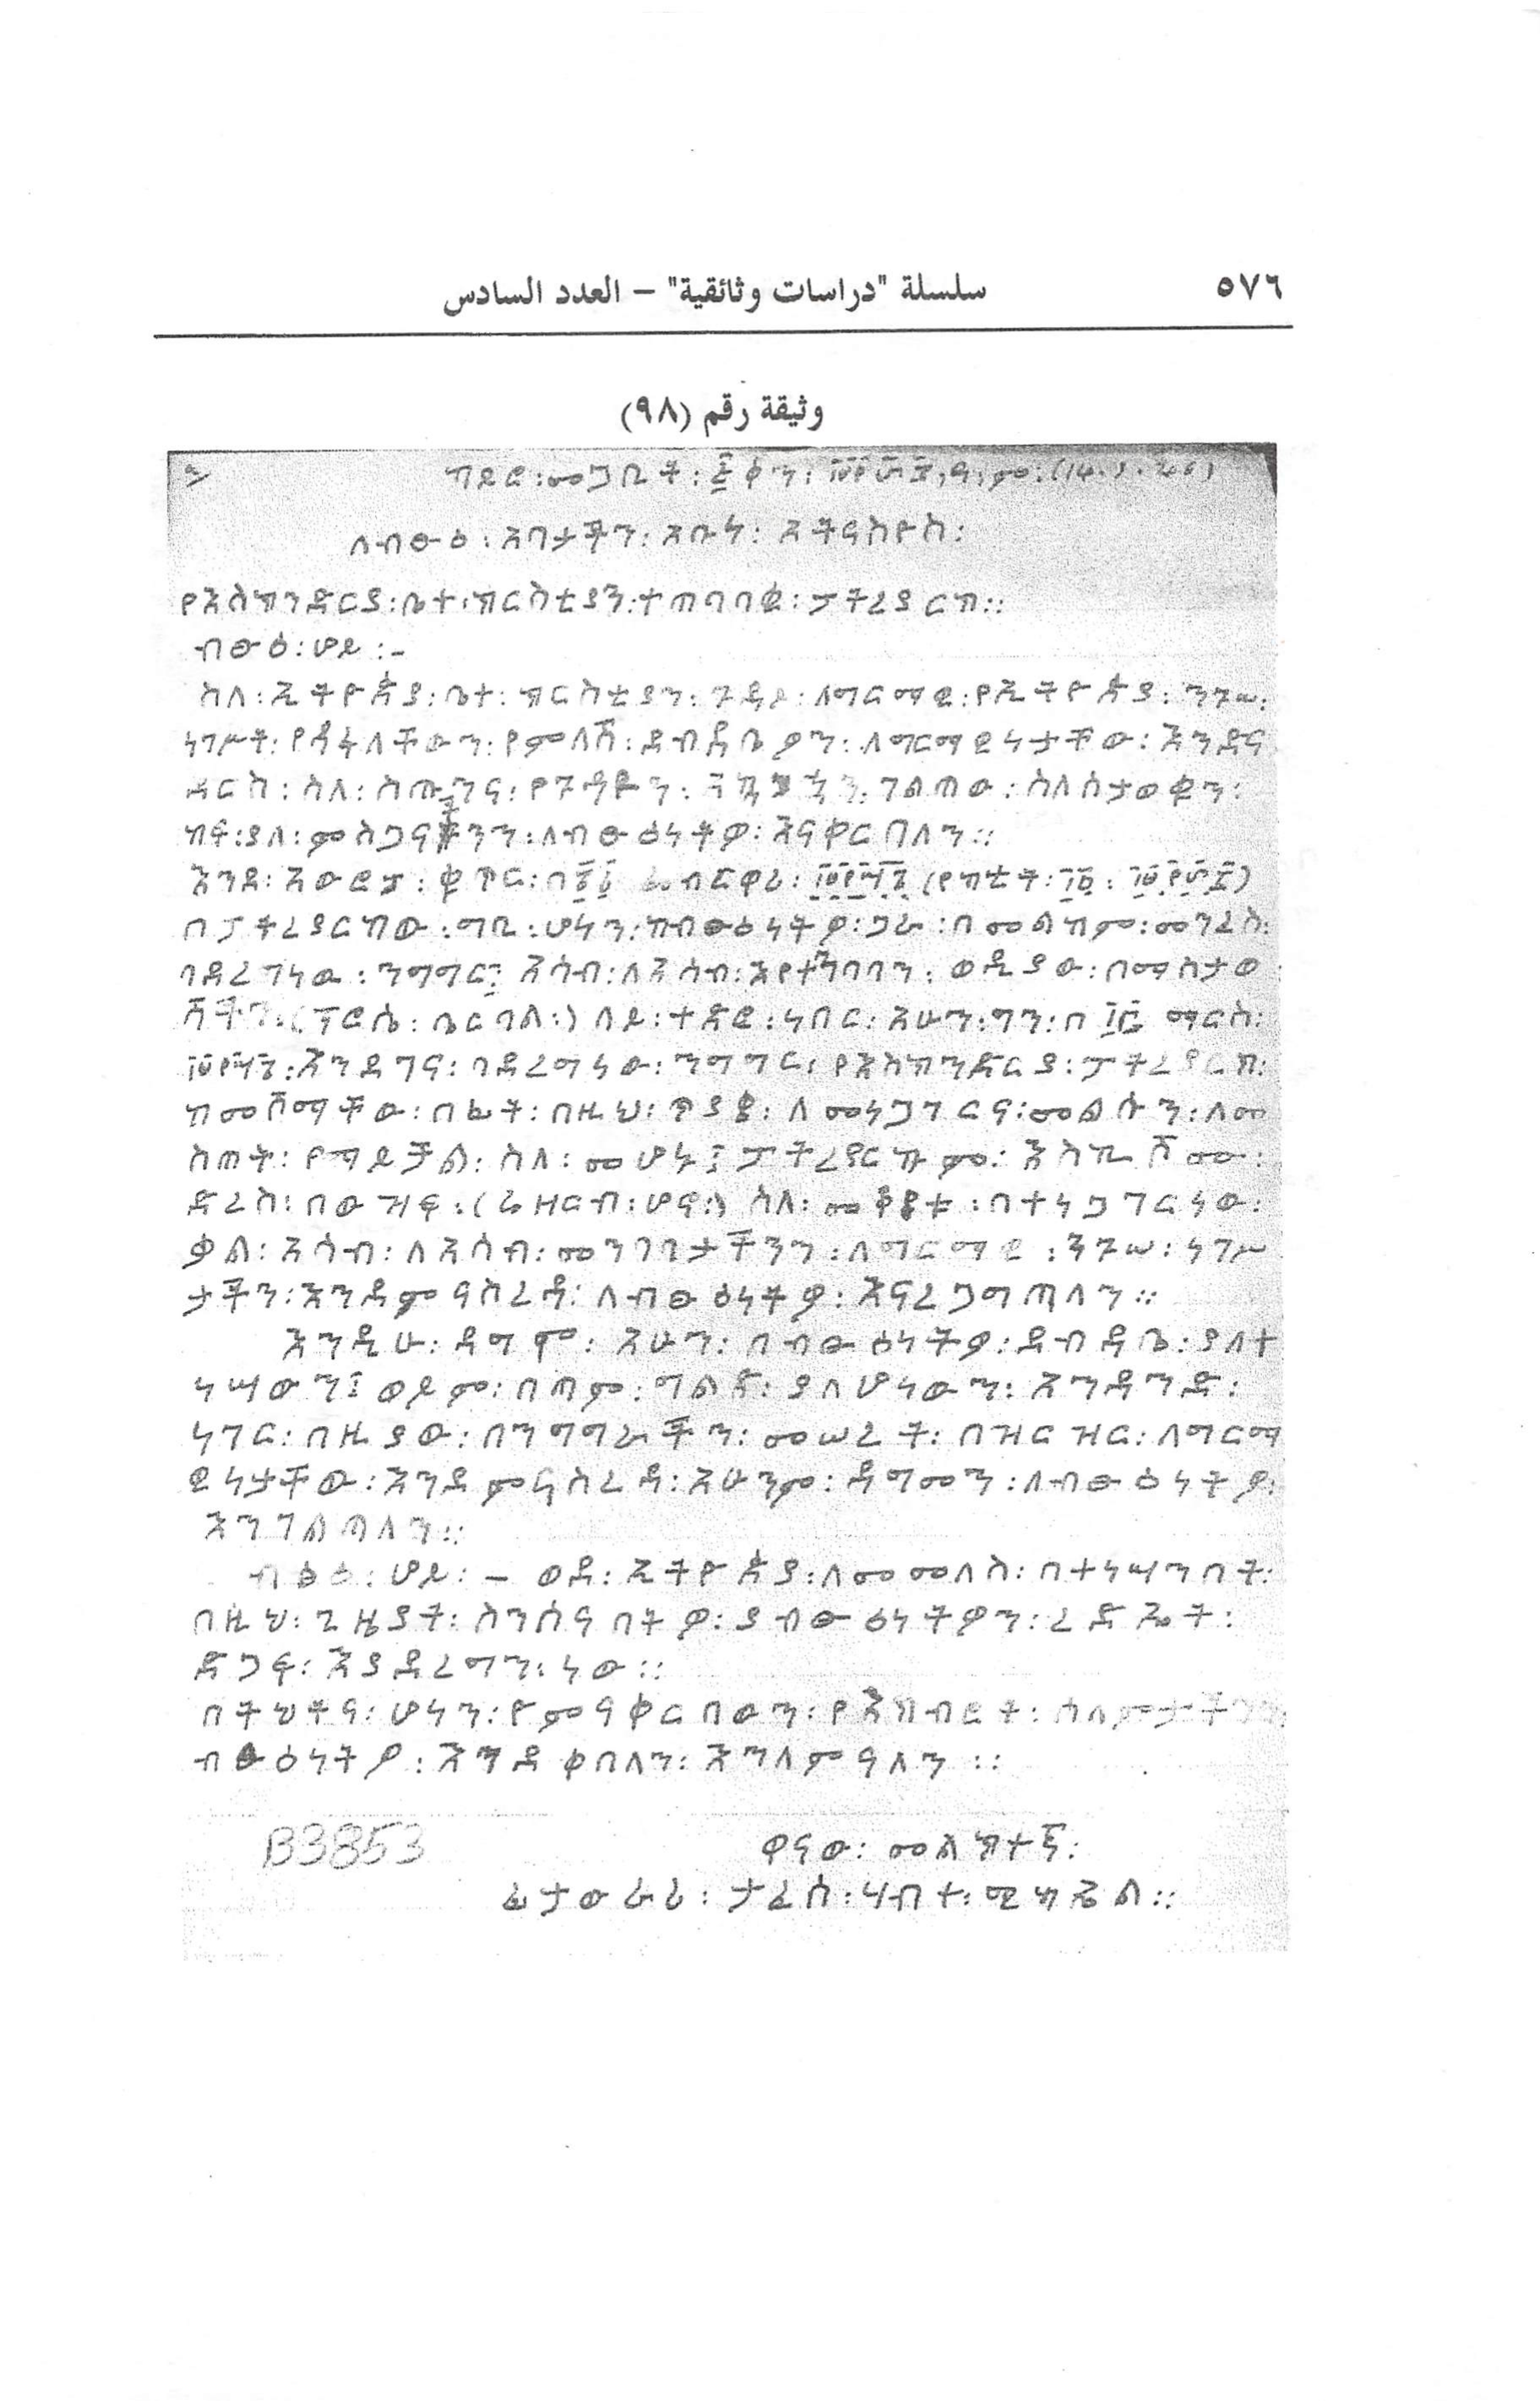 ٥٧٦ سلسلة "دراسات وثائقية" – العدد السادس
وثيقة رقم (٩٨)
ካይሮ፡መጋቢት፡ ቀን፡
ለብፁዕ፡አባታችን፡አቡነ፡አትናስዮስ፡
የእስክንድርያ፡ቤተ፡ክርስቲያን፡ተጠባባቂ፡ፓትረያርክ።
ብፁዕ፡ሆይ፡-
ስለ፡ኢትዮጵያ፡ቤተ፡ክርስቲያን፡ጉዳይ፡ለግርማዊ፡የኢትዮጵያ፡ንጉሠ፡
ነገሥት፡የዳፋለቸውን፡የምለሽ፡ደብዳቤዎን፡ለግርማዊነታቸው፡እንዳና
ዳርስ፡ስለ፡ስጡንና፡የጉዳዩን፡ ገልጠው፡ስለስታወቁን፡
ከፍ፡ያለ፡ምስጋናችንን፡ለብፁዕነትዎ፡እናቀርባለን።
እንደ፡አውሮፓ፡ቊጥር፡በ፳፮ ፌብርዋሪ፡ (የካቲት፡
በፓትረያርከው፡ግቢ፡ሆነን፡ከብፁዕነትዎ፡ጋራ፡በመልከም፡መንረስ፡
ባደረግነው፡ንግግር፤ አሳብ፡ለአሳብ፡እየተግባባን፡ወዲያው፡በማስታወ
ሻችን፡(ፕሮሴ፡ቤርባል፡) ላይ፡ተጽፎ፡ነበር፡አሁን፡ግን፡በ ማርስ፡
እንደገና፡ባደረግነው፡ንግግር፡የእስክንድርያ፡ፓትረያርክ፡
ከመሾማቸው፡በፊት፡በዚህ፡ጥያቄ፡ለመነጋገርና፡መልሱን፡ለመ
ስጠት፡የማይቻል፡ስለ፡መሆኑ፤ፓትረያርኩም፡እስኪሾሙ፡
ድረስ፡በውዝፍ፡(ሬዘርብ፡ሆና፡) ስለ፡መቆየቱ፡በተነጋገርነው፡
ቃል፡አሳብ፡ለአሳብ፡መንገባታችንን፡ለግርማዊ፡ንጉሠ፡ነገሥ
ታችን፡እንደምናስረዳ፡ለብፁዕነትዎ፡እናረጋግጣለን።
እንዲሁ፡ደግሞ፡አሁን፡በብፁዕነትዎ፡ደብዳቤ፡ያለተ
ነሣውን፤ወይም፡በጣም፡ግልጽ፡ያለሆነውን፡አንዳንድ፡
ነገር፡በዚያው፡በንግግራችን፡መሠረት፡በዝርዝር፡ለግርማ
ዊነታቸው፡እንደምናስረዳ፡አሁንም፡ዳግመን፡ለብፁዕነትዎ፡
እንገልጣለን።
ብፁዕ፡ሆይ፡- ወደ፡ኢትዮጵያ፡ለመመለስ፡በተነሣንበት፡
በዚህ፡ጊዜያት፡ስንሰናበትዎ፡ያብፁዕነትዎን፡ረድኤት፡
ድጋፍ፡እያደረግን፡ነው።
በትህትና፡ሆነን፡የምናቀርበውን፡የአክብሮት፡ሰላምታችንን፡
ብፁዕነትዎ፡እንደቀበለን፡እንለምናለን።
B3853
ዋናው፡መልክተኛ፡
ፊታውራሪ፡ታፈሰ፡ሃብተ፡ሚካኤል።